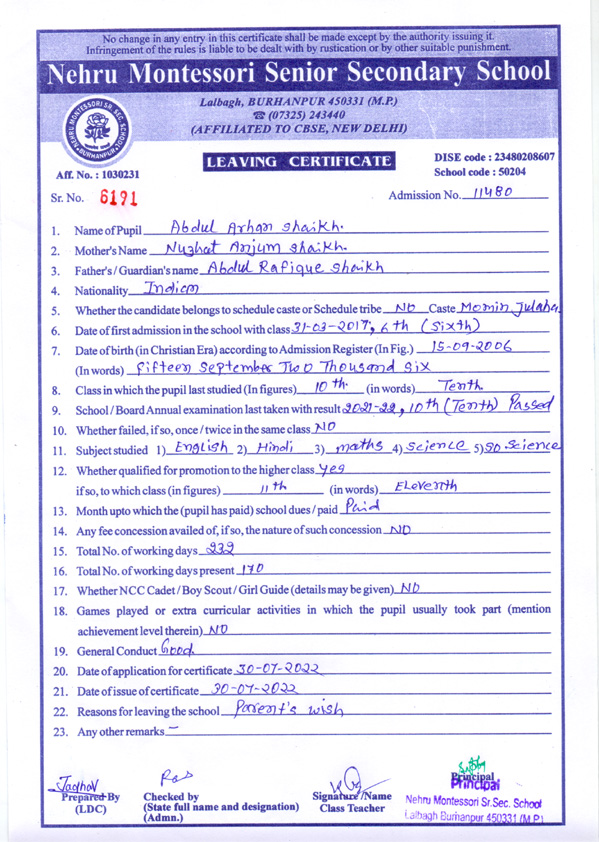 No change in any entry in this certificate shall be made except by the authority issuing it.
Infringement of the rules is liable to be dealt with by rustication or by other suitable punishment.
Nehru Montessori Senior Secondary School
NEHRU MONTESSORI SR. SEC. SCHOOL
BURHANPUR
Lalbagh, BURHANPUR 450331 (M.P.)
☎ (07325) 243440
(AFFILIATED TO CBSE, NEW DELHI)
Aff. No. : 1030231
LEAVING CERTIFICATE
DISE code : 23480208607
School code : 50204
Sr. No. 6191
Admission No. 11480
1. Name of Pupil Abdul Arhan Shaikh.
2. Mother's Name Nuzhat Anjum Shaikh.
3. Father's / Guardian's name Abdul Rafique Shaikh
4. Nationality Indian
5. Whether the candidate belongs to schedule caste or Schedule tribe NO Caste Momin Julaha
6. Date of first admission in the school with class 31-03-2017, 6th (Sixth)
7. Date of birth (in Christian Era) according to Admission Register (In Fig.) 15-09-2006
(In words) Fifteen September Two Thousand Six
8. Class in which the pupil last studied (In figures) 10th. (in words) Tenth
9. School / Board Annual examination last taken with result 2021-22, 10th (Tenth) Passed
10. Whether failed, if so, once / twice in the same class NO
11. Subject studied 1) English 2) Hindi 3) maths 4) Science 5) SO Science
12. Whether qualified for promotion to the higher class yes
if so, to which class (in figures) 11th (in words) Eleventh
13. Month upto which the (pupil has paid) school dues / paid Paid
14. Any fee concession availed of, if so, the nature of such concession NO
15. Total No. of working days 232
16. Total No. of working days present 170
17. Whether NCC Cadet / Boy Scout / Girl Guide (details may be given) NO
18. Games played or extra curricular activities in which the pupil usually took part (mention
achievement level therein) NO
19. General Conduct Good.
20. Date of application for certificate 30-07-2022
21. Date of issue of certificate 30-07-2022
22. Reasons for leaving the school Parent's wish
23. Any other remarks —
Jadhav
Prepared By
(LDC)
Checked by
(State full name and designation)
(Admn.)
Signature / Name
Class Teacher
Principal
Principal
Nehru Montessori Sr.Sec. School
Lalbagh Burhanpur 450331 (M.P.)